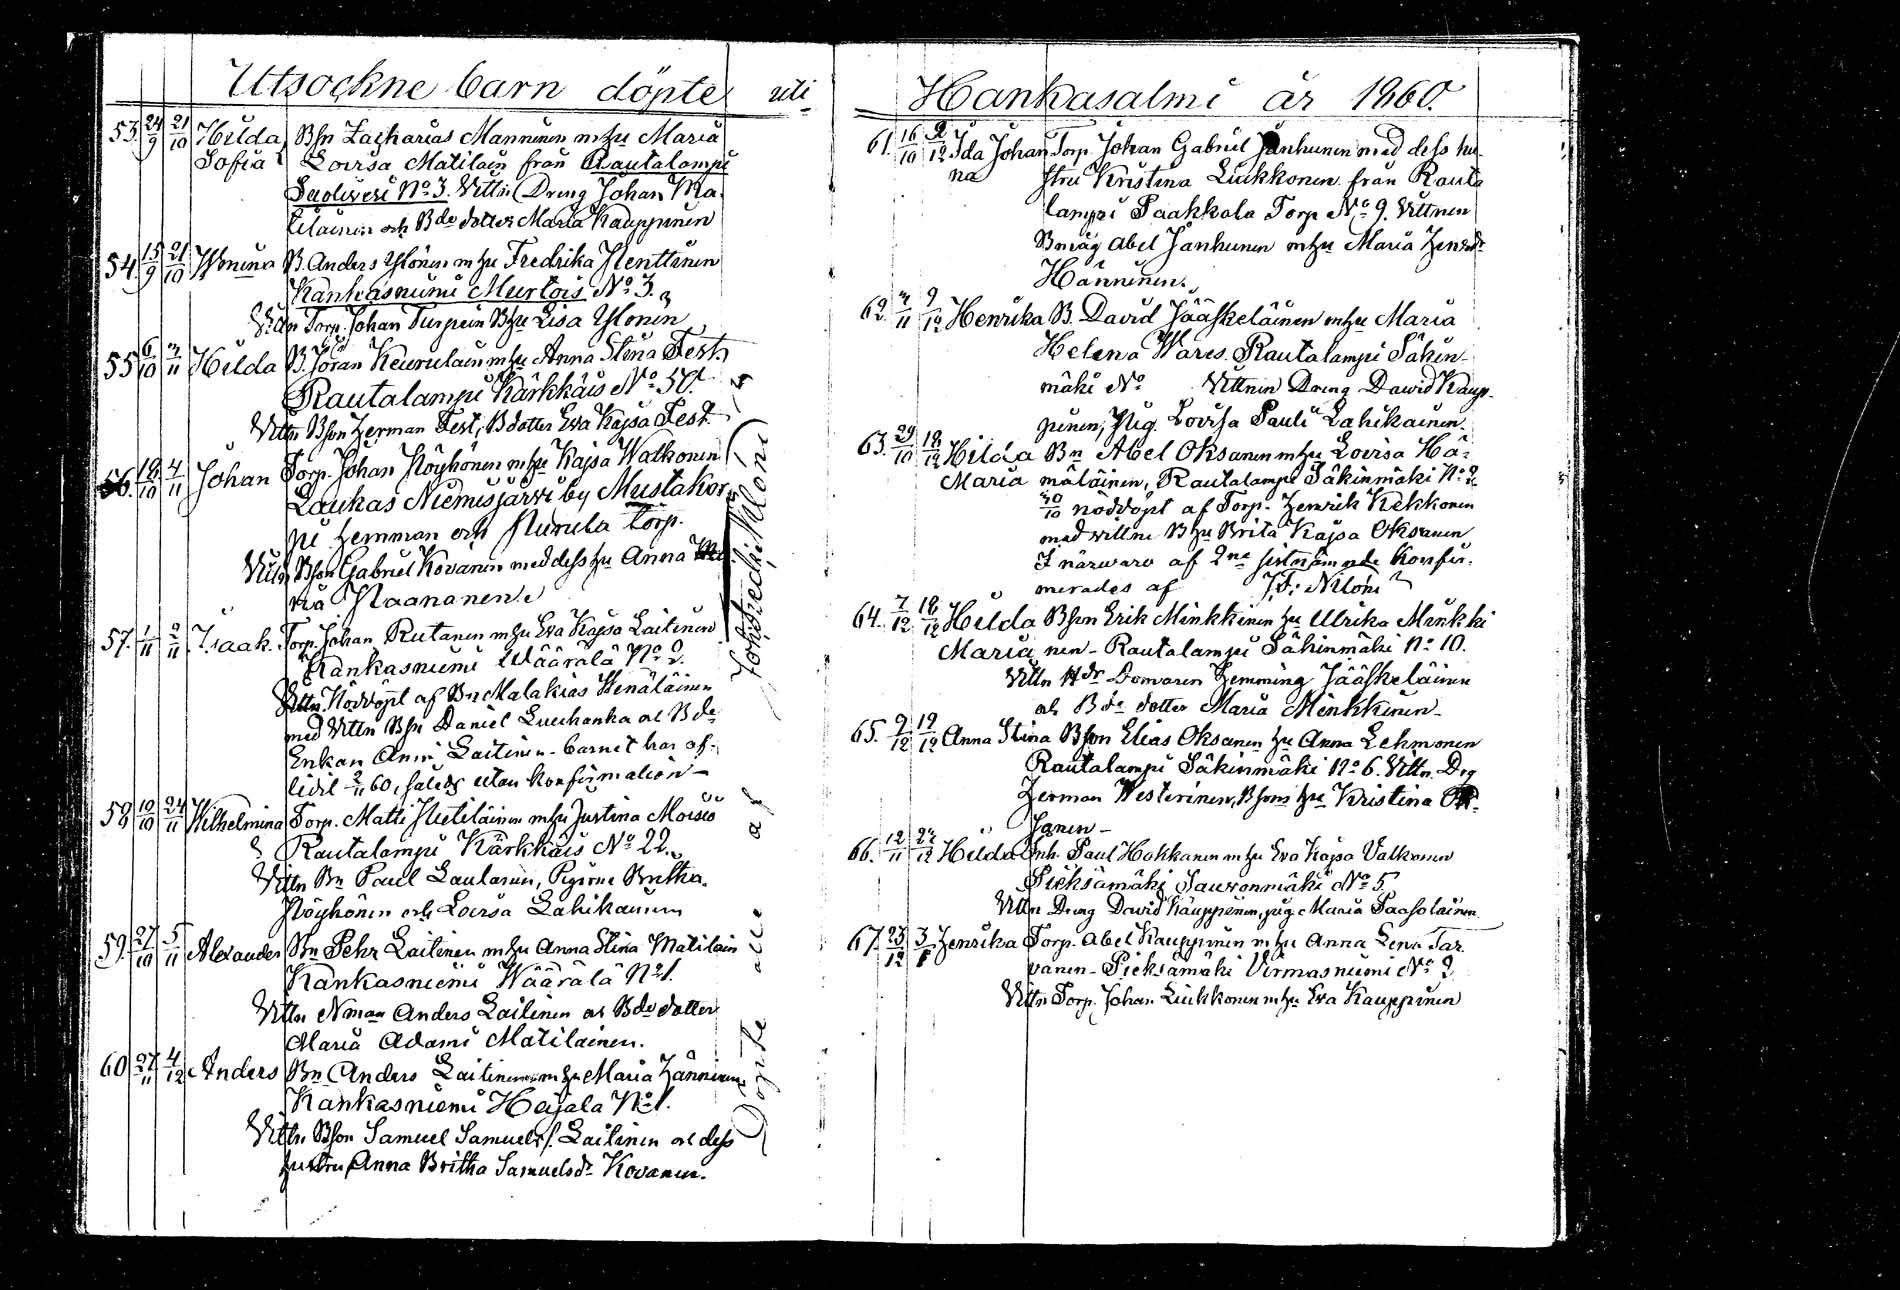 Utsockne barn döpte uti Hankasalmi år 1860.
53. 24/9 21/10 Hilda Bsn Zacharias Manninen m hu Maria
Sofia Lovisa Matilain från Rautalampi
Suolivesi No 3. Vittn. Dreng Johan Ma-
tilainen och Bde dotter Maria Kauppinen
54 15/9 21/10 B. Anders Ylönen m hu Fredrika Henttinen
Kankasniemi Murtois No 3.
Vittn Torp. Johan Turpein Bhu Lisa Ylönen
55 6/10 Hilda B. Johan Keurulain m hu Anna Stina Fest.
Rautalampi Kärkkäis No 50.
Vittn Bson Herman Fest, B dotter Eva Kajsa Fest.
56. 18/10 4/11 Johan Torp. Johan Pöyhönen m hu Kajsa Watkonen
Laukas Niemisjärwi by Mustakor
pi hemman och Nurula torp.
Vittn Bson Gabriel Kovanen med dess hu Anna Ma
ria Paananen.
57. 1/11 2/11 Isaak. Torp. Johan Rutanen m hu Eva Kajsa Laitinen
Kankasniemi Wäärälä No 2.
Vittn. Nöddöpt af Bn Malakias Wenäläinen
med Vittn Bsn Daniel Luukanka ol Bde
Enkan Anni Laitinen. barnet har af-
lidit 60, således utan konfirmation –
58 10/10 24/11 Wilhelmina Torp. Matti Hietiläinen m hu Justina Moisio
Rautalampi Kärkkäis No 22.
Vittn Bn Paul Lautanen, Pigorne Britha
Pöyhönen och Lovisa Lahikainen
59. 27/10 5/11 Alexander Bn Pehr Laitinen m hu Anna Stina Matilain
Kankasniemi Wäärälä No 1.
Vittn Nman Anders Laitinen ol Bde dotter
Maria Adami Matilainen.
60 27/11 4/12 Anders Bn Anders Laitinen m hu Maria Hänninen
Kankasniemi Heijala No 1.
Vittn Bson Samuel Samuels. Laitinen ol dess
hustru Anna Britha Samuelsdr Kovanen.
Döpte alle af Joh. Fredr. Nilóni
61. 16/10 2/12 Ida Johan Torp. Johan Gabriel Janhunen med dess hu-
na stru Kristina Liukkonen från Rauta
lampi Paakkala Torp No 9. Vittnen
Bmåg Abel Janhunen m hu Maria Henrdr
Hänninen.
62. 9/12 Henrika B. David Jääskeläinen m hu Maria
Helena Wares. Rautalampi Säkin-
mäki No Vittnen Dreng Dawid Kaup-
pinen, Pig. Lovisa Pauli Lahikainen.
63. 29/10 18/12 Hilda Bn Abel Oksanen m hu Lovisa Hä-
Maria mäläinen, Rautalampi Säkinmäki No 2
30/10 nöddöpt af Torp. Henrik Kekkonen
med vittne Bhu Brita Kajsa Oksanen
I närwaro af 2ne sistnämnde Konfir-
merades af J. F. Nilóni
64. 7/12 18/12 Hilda Bson Erik Minkkinen hu Ulrika Minkki
Maria nen – Rautalampi Säkinmäki No 10.
Vittn Hdr Domaren Hemming Jääskeläinen
ol Bde dotter Maria Minkkinen –
65. 9/12 19/12 Anna Stina Bson Elias Oksanen hu Anna Lehmonen
Rautalampi Säkinmäki No 6. Vittn. Drg
Herman Westerinen, Bsons hu Kristina Ok-
sanen –
66. 12/11 Hilda Inh. Paul Hokkanen m hu Eva Kajsa Valkonen
Pieksämäki Sauvonmäki No 5
Vittn Dreng David Kauppinen, pig. Maria Paasolainen
67. 23/12 3/1 Henrika Torp. Abel Kauppinen m hu Anna Lena Tar
vanen – Pieksämäki Virmasniemi No 2
Vittn Torp. Johan Liukkonen m hu Eva Kauppinen